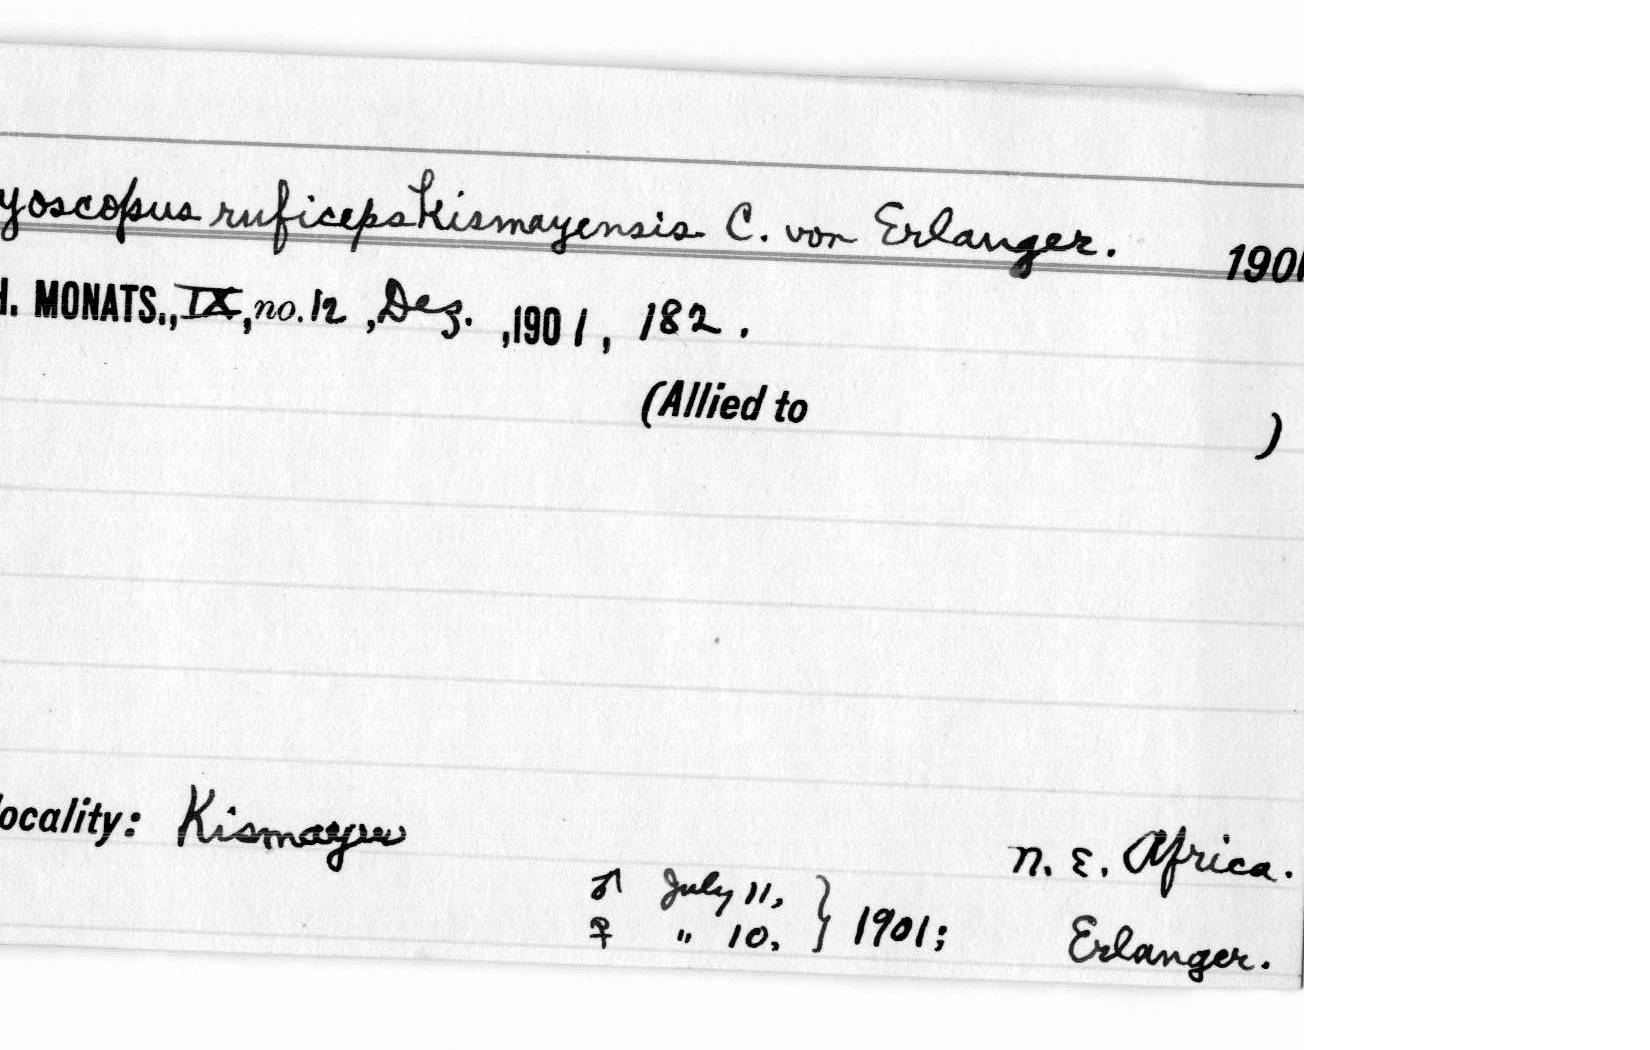 yoscopus ruficeps kismayensis C. von Erlanger. 1901
. MONATS., IX, no. 12, Dez. ,1901, 182.
(Allied to )
locality: Kismayu N. E. Africa.
♂ July 11,
♀ " 10, } 1901; Erlanger.